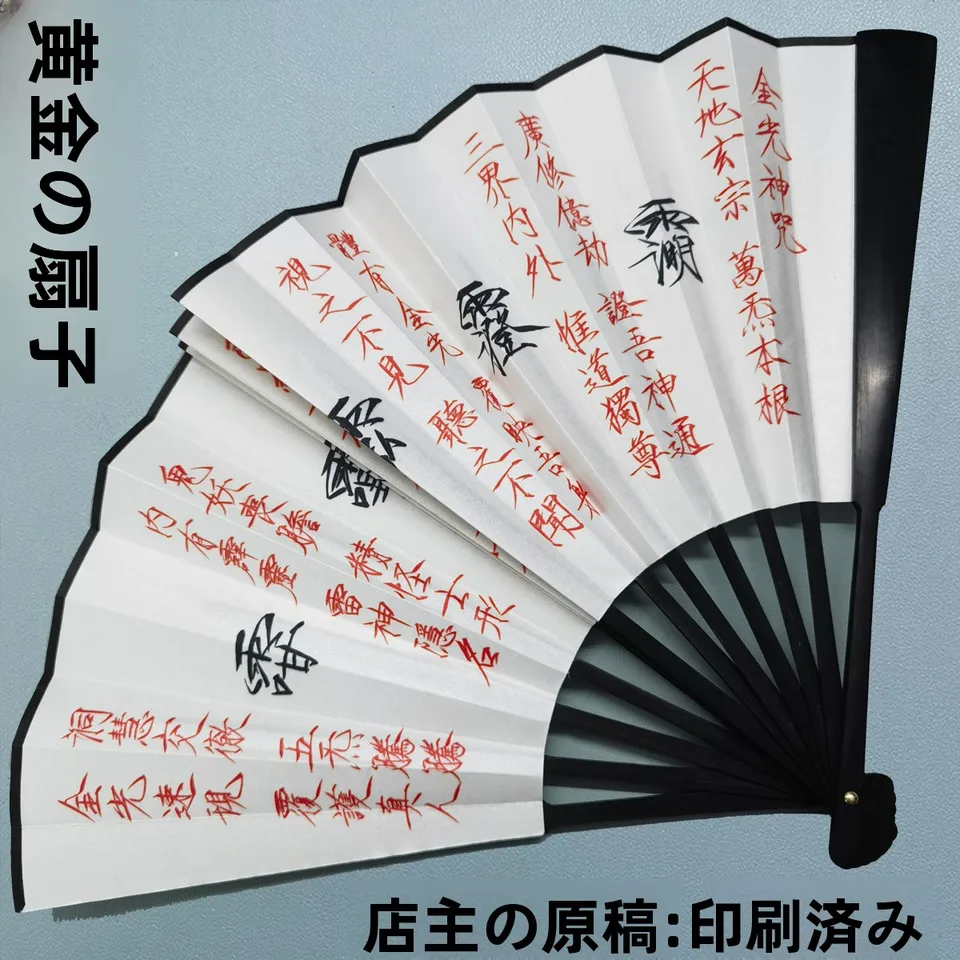 黄金の扇子
金光神咒
天地玄宗 萬炁本根
廣修億劫 證吾神通
三界内外 惟道獨尊
體有金光 覆映吾
視之不見 聽之不聞
鬼妖喪膽 精怪亡形
内有霹靂 雷神隱名
洞慧交徹 五炁騰騰
金光速現 覆護真人
店主の原稿:印刷済み